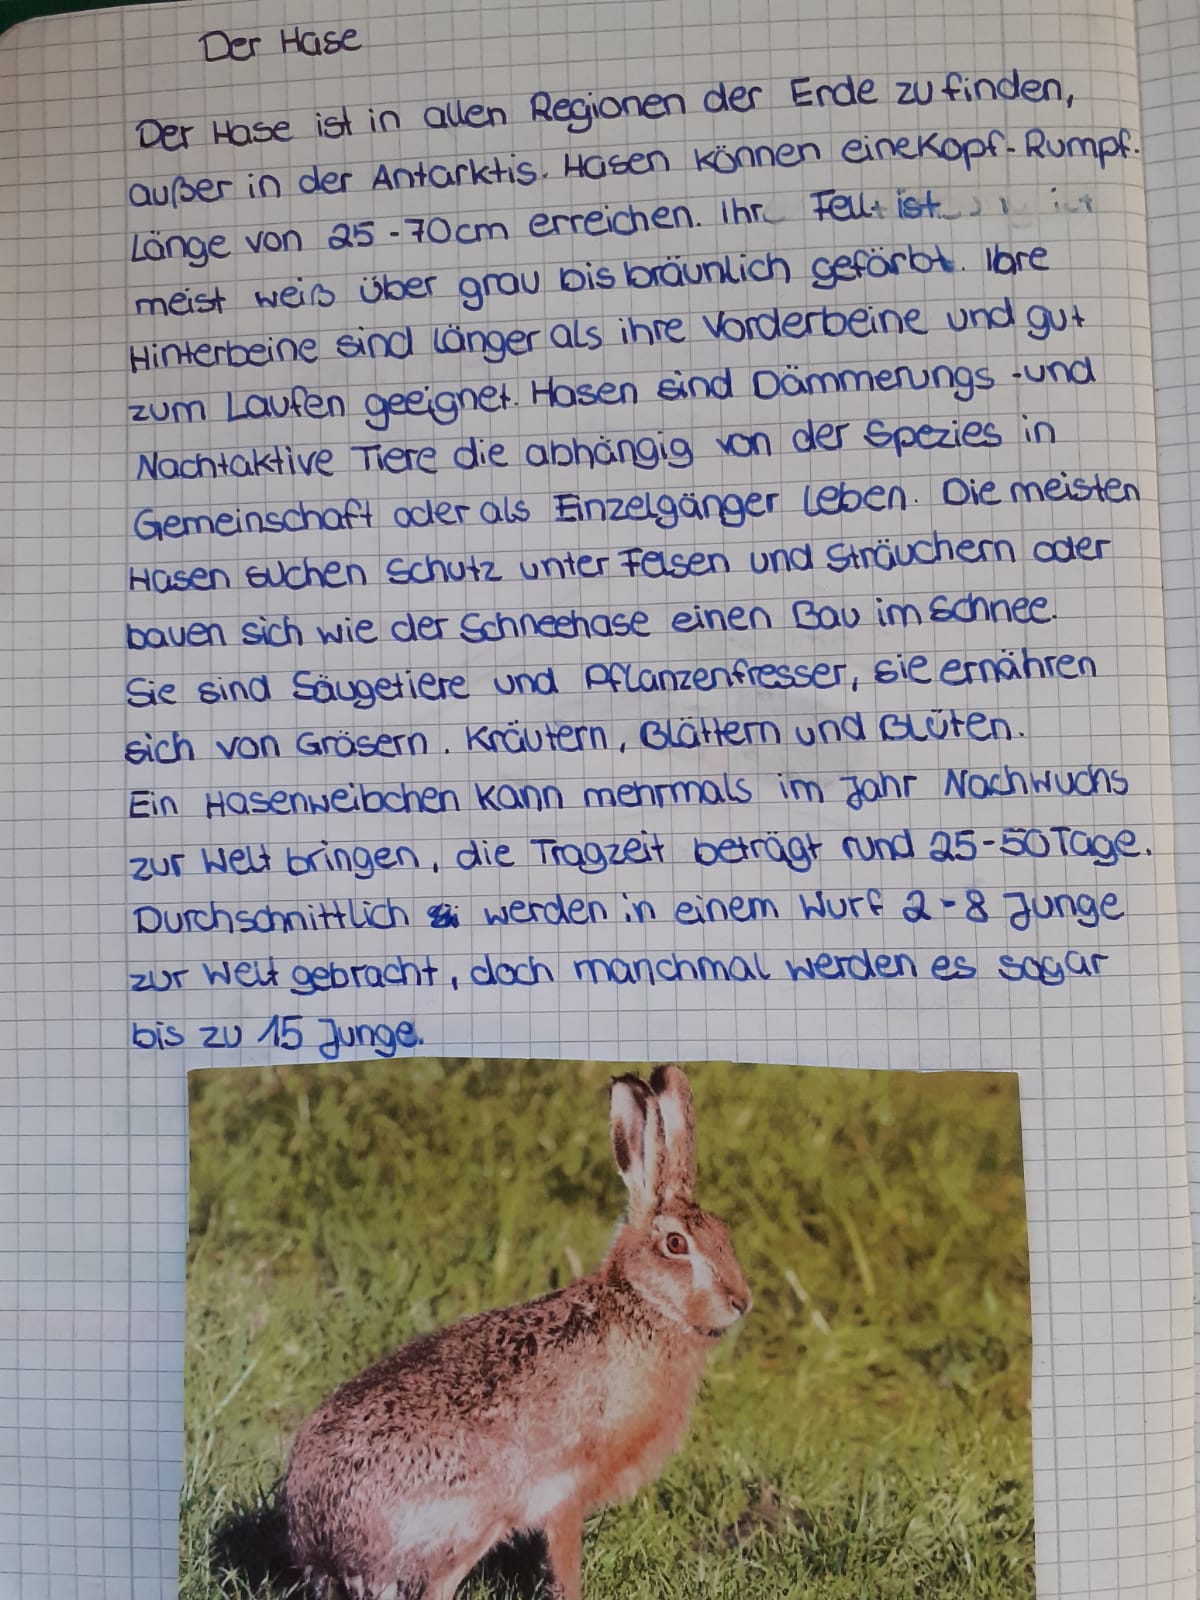 Der Hase
Der Hase ist in allen Regionen der Erde zu finden,
außer in der Antarktis. Hasen können eine Kopf-Rumpf-
Länge von 25-70cm erreichen. Ihr Fell ist
meist weiß über grau bis bräunlich gefärbt. Ihre
Hinterbeine sind länger als ihre Vorderbeine und gut
zum Laufen geeignet. Hasen sind Dämmerungs -und
Nachtaktive Tiere die abhängig von der Spezies in
Gemeinschaft oder als Einzelgänger leben. Die meisten
Hasen suchen Schutz unter Felsen und Sträuchern oder
bauen sich wie der Schneehase einen Bau im Schnee.
Sie sind Säugetiere und Pflanzenfresser, sie ernähren
sich von Gräsern. Kräutern, Blättern und Blüten.
Ein Hasenweibchen kann mehrmals im Jahr Nachwuchs
zur Welt bringen, die Tragzeit beträgt rund 25-50 Tage.
Durchschnittlich werden in einem Wurf 2-8 Junge
zur Welt gebracht, doch manchmal werden es sogar
bis zu 15 Junge.